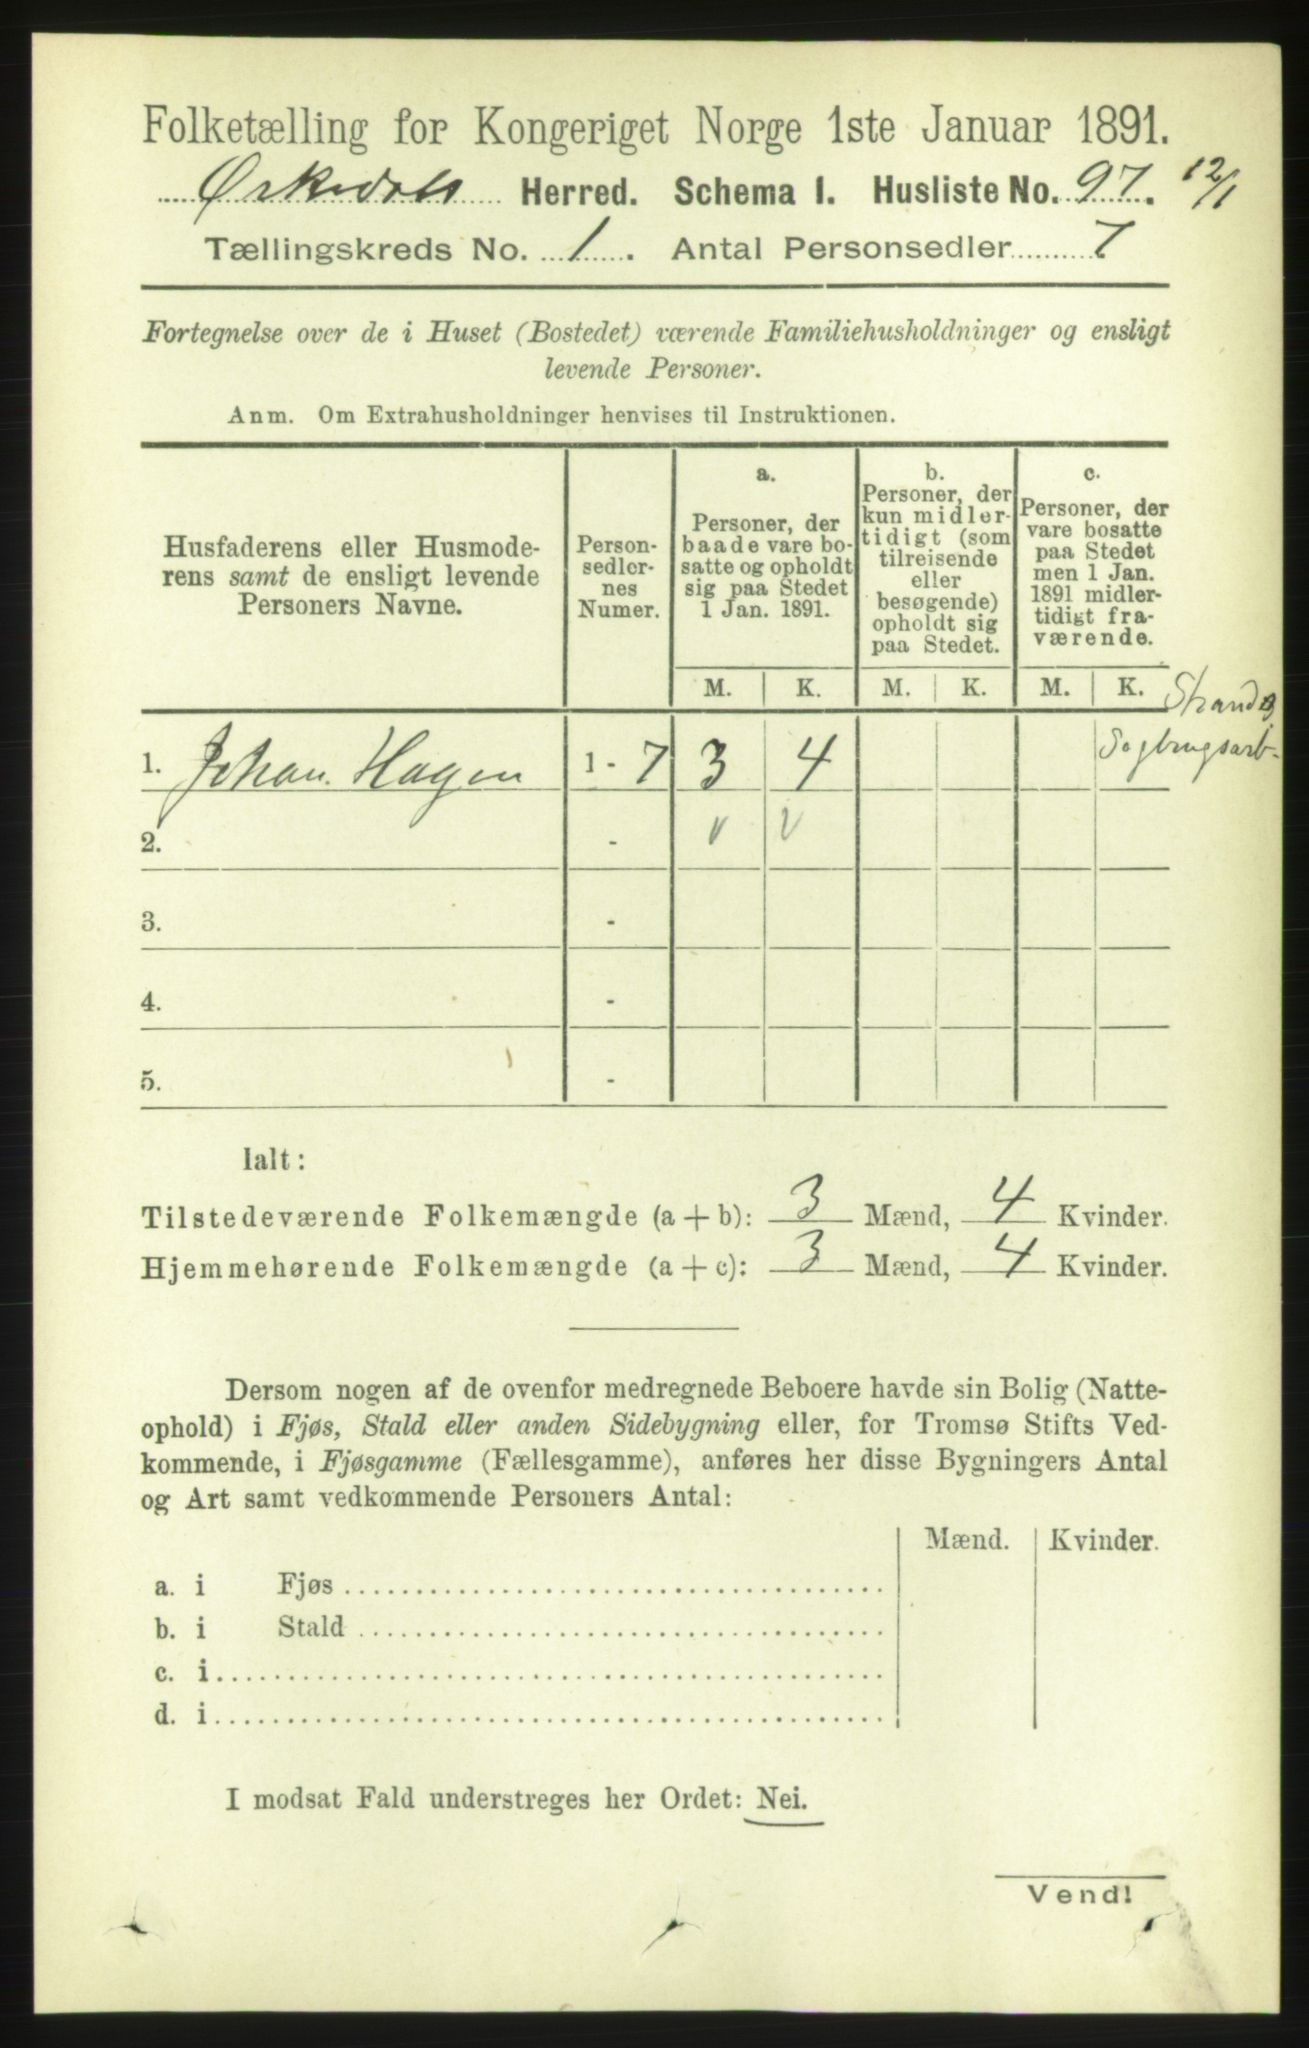 Folketælling for Kongeriget Norge 1ste Januar 1891.
Ørkedals Herred. Schema I. Husliste No. 97. 12/1
Tællingskreds No. 1. Antal Personsedler 7
Fortegnelse over de i Huset (Bostedet) værende Familiehusholdninger og ensligt
levende Personer.
Anm. Om Extrahusholdninger henvises til Instruktionen.
Husfaderens eller Husmode-
rens samt de ensligt levende
Personers Navne.
Person-
sedler-
nes
Numer.
a.
Personer, der
baade vare bo-
satte og opholdt
sig paa Stedet
1 Jan. 1891.
b.
Personer, der
kun midler-
tidigt (som
tilreisende
eller
besøgende)
opholdt sig
paa Stedet.
c.
Personer, der
vare bosatte
paa Stedet
men 1 Jan.
1891 midler-
tidigt fra-
værende.
M. K. M. K. M. K.
1. Johan Hagen 1 - 7 3 4 Sagbrugsarb-
2. - v v
3. -
4. -
5. -
Ialt:
Tilstedeværende Folkemængde (a + b): 3 Mænd, 4 Kvinder.
Hjemmehørende Folkemængde (a + c): 3 Mænd, 4 Kvinder.
Dersom nogen af de ovenfor medregnede Beboere havde sin Bolig (Natte-
ophold) i Fjøs, Stald eller anden Sidebygning eller, for Tromsø Stifts Ved-
kommende, i Fjøsgamme (Fællesgamme), anføres her disse Bygningers Antal
og Art samt vedkommende Personers Antal:
Mænd. Kvinder.
a. i Fjøs
b. i Stald
c. i
d. i
I modsat Fald understreges her Ordet: Nei.
Vend!